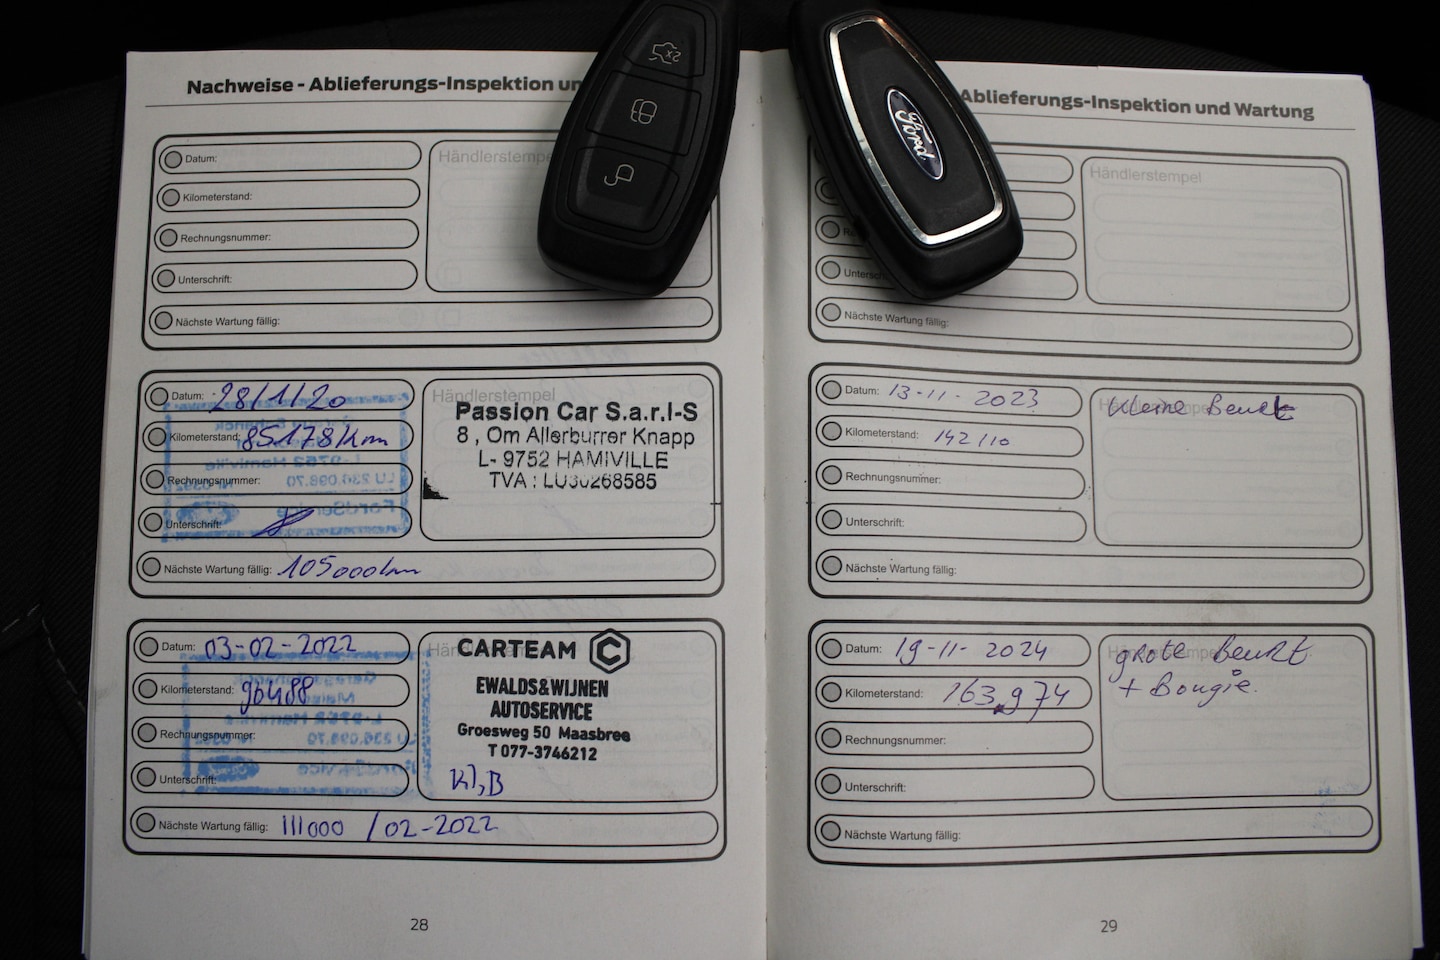 Nachweise - Ablieferungs-Inspektion un
Datum:
Händlerstempe
Kilometerstand:
Rechnungsnummer:
Unterschrift:
Nächste Wartung fällig:
Datum: 28/1/20
Kilometerstand: 85178 km
Rechnungsnummer:
Unterschrift:
Händlerstempel
Passion Car S.a.r.l-S
8 , Om Allerburrer Knapp
L- 9752 HAMIVILLE
TVA : LU30268585
Nächste Wartung fällig: 105000km
Datum: 03-02-2022
Kilometerstand: 96488
Rechnungsnummer:
Unterschrift:
CARTEAM
EWALDS&WIJNEN
AUTOSERVICE
Groesweg 50 Maasbree
T 077-3746212
Kl,B
Nächste Wartung fällig: 111000 / 02-2022
28
x2
Ford
Ablieferungs-Inspektion und Wartung
Händlerstempel
Re
Untersch
Nächste Wartung fällig:
Datum: 13-11-2023
Kilometerstand: 142110
Rechnungsnummer:
Unterschrift:
Kleine Beurt
Nächste Wartung fällig:
Datum: 19-11-2024
Kilometerstand: 163,974
Rechnungsnummer:
Unterschrift:
grote Beurt
+ Bougie.
Nächste Wartung fällig:
29